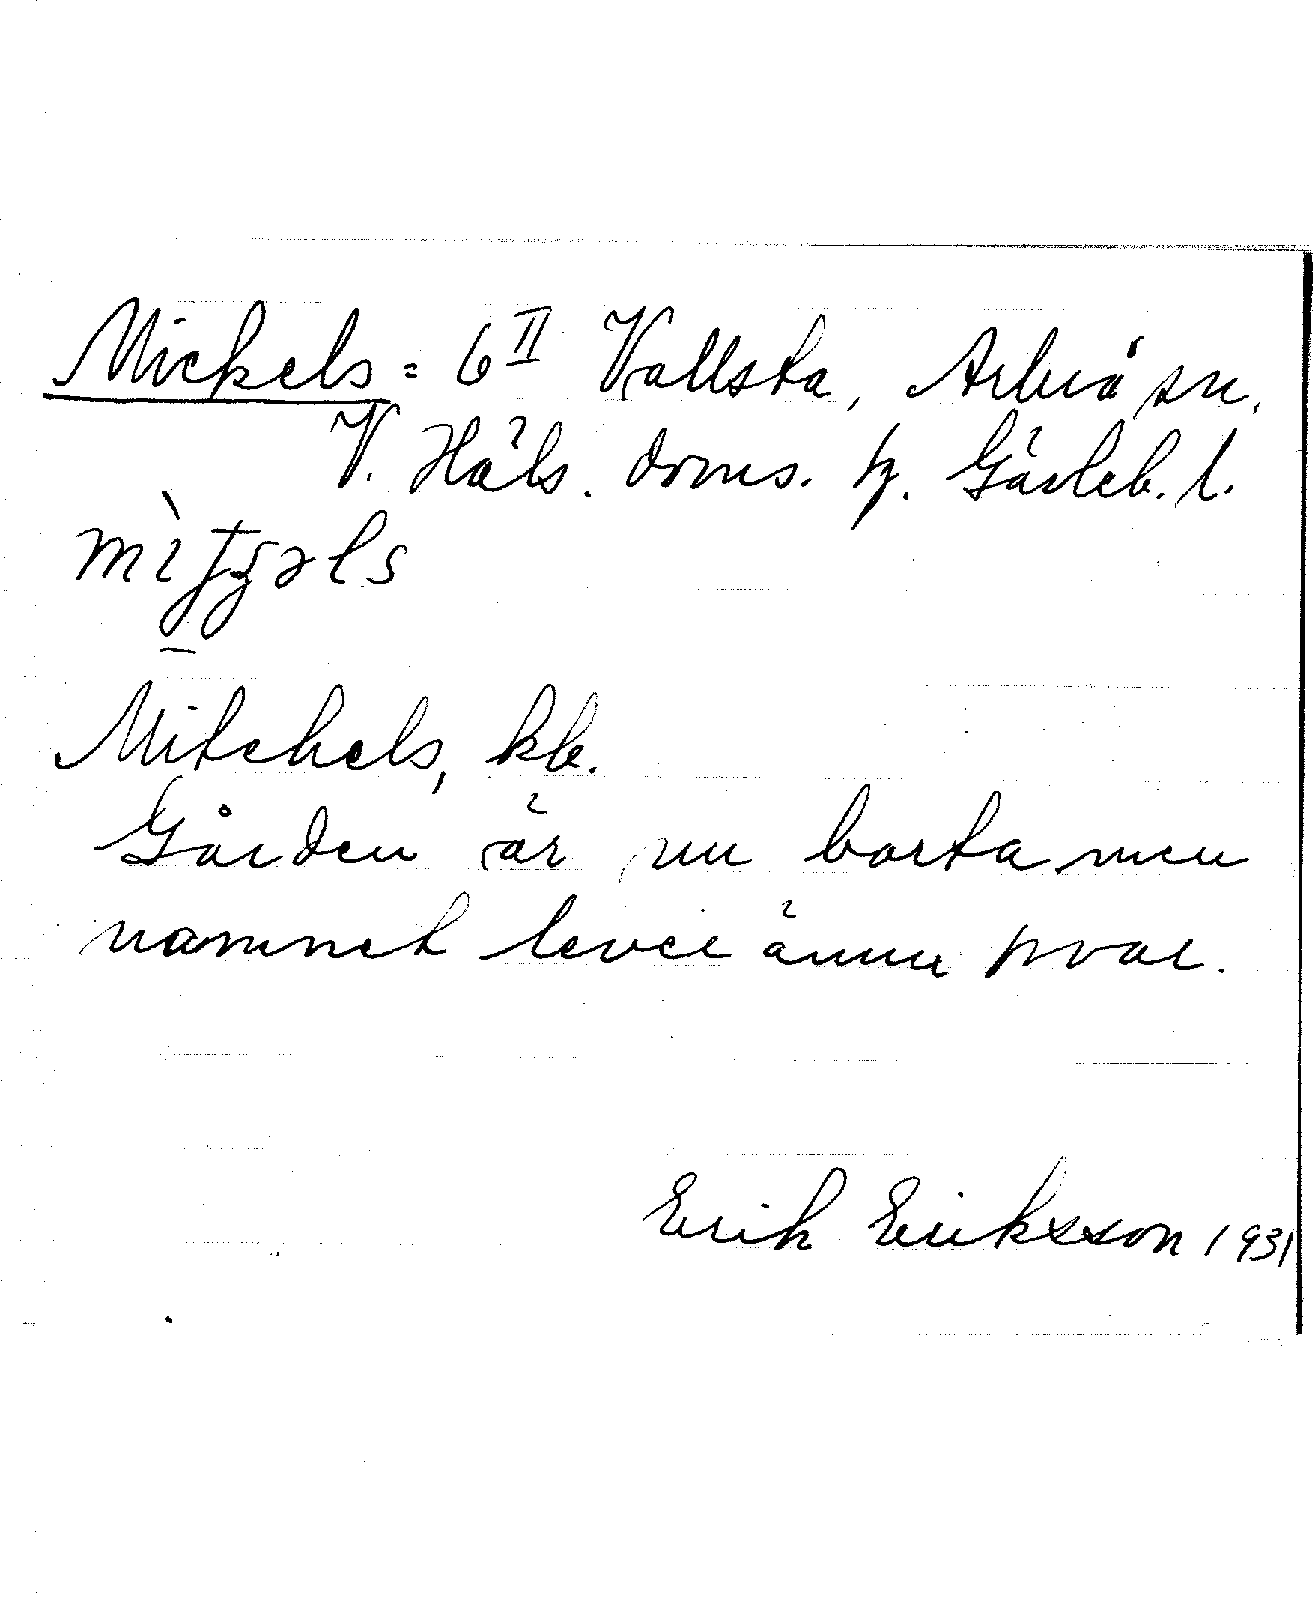 Mickels = 6 II Vallsta, Arbrå sn.
V. Häls. doms. hz. Gävleb. l.
Mitchels, kb.
Gården är nu borta men
namnet lever ännu kvar.
Erik Eriksson 1931